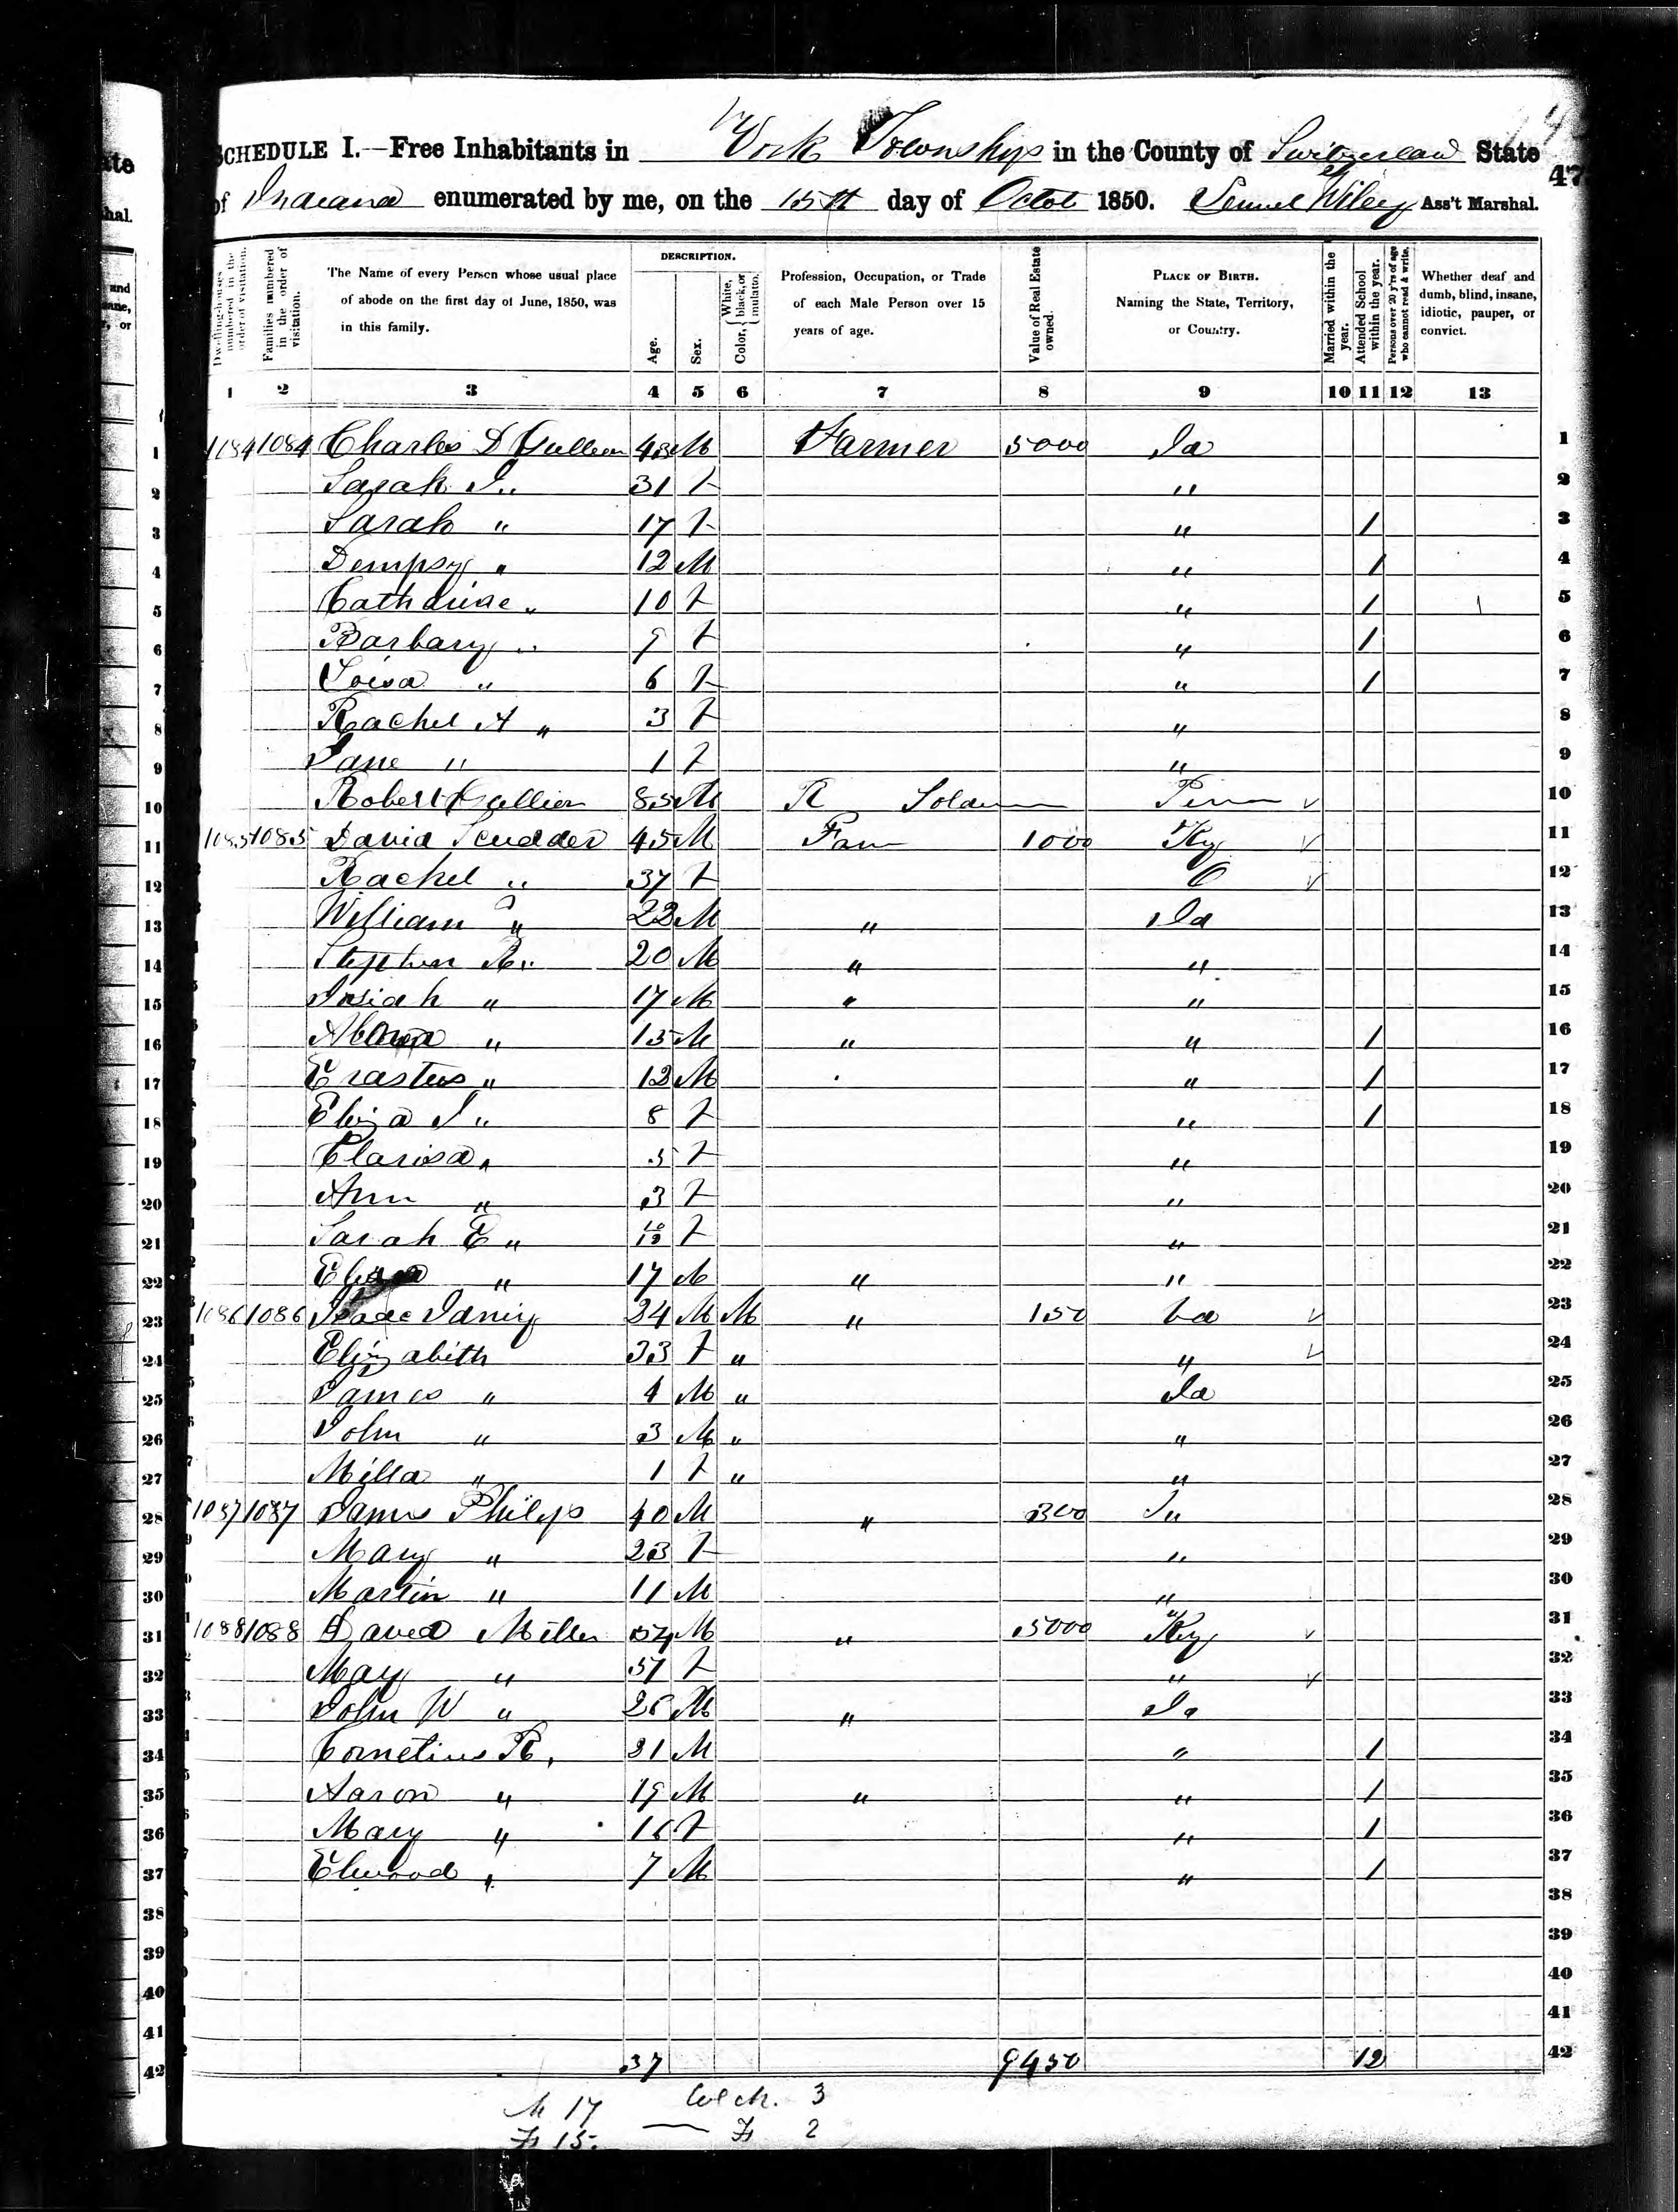 SCHEDULE I.—Free Inhabitants in York Township in the County of Switzerland State 47
of Indiana enumerated by me, on the 15th day of Octob 1850. Lemuel Wiley Ass't Marshal.
Dwelling-houses numbered in the order of visitation.
Families numbered in the order of visitation.
The Name of every Person whose usual place of abode on the first day of June, 1850, was in this family.
DESCRIPTION.
Age.
Sex.
Color, { White, black, or mulatto.
Profession, Occupation, or Trade of each Male Person over 15 years of age.
Value of Real Estate owned.
PLACE OF BIRTH. Naming the State, Territory, or Country.
Married within the year.
Attended School within the year.
Persons over 20 y'rs of age who cannot read & write.
Whether deaf and dumb, blind, insane, idiotic, pauper, or convict.
1 2 3 4 5 6 7 8 9 10 11 12 13
1 1084 1084 Charles D 43 M Farmer 5000 Ia 1
2 Sarah J " 31 F " 2
3 Sarah " 17 F " 1 3
4 Dempsy " 12 M " 1 4
5 Catharine " 10 F " 1 5
6 Barbary " 9 F " 1 6
7 Loisa " 6 F " 1 7
8 Rachel A " 3 F " 8
9 Jane " 1 F " 9
10 Robert Gullion 85 M R Soldier Penn 10
11 1085 1085 David Scudder 45 M Farm 1000 Ky 11
12 Rachel " 37 F O 12
13 William " 22 M " Ia 13
14 Stephen R " 20 M " " 14
15 Josiah " 17 M " " 15
16 " 15 M " " 1 16
17 Erastus " 12 M " 1 17
18 Eliza J " 8 F " 1 18
19 Clarisa " 5 F " 19
20 Ann " 3 F " 20
21 Sarah E " 10/12 F " 21
22 " 17 M " " 22
23 1086 1086 Isaac 34 M M " 150 23
24 Elizabeth 33 F " " 24
25 James " 4 M " Ia 25
26 John " 3 M " " 26
27 Milla " 1 F " " 27
28 1087 1087 James Philips 40 M " 300 28
29 Mary " 23 F " 29
30 Martin " 11 M " 30
31 1088 1088 David Miller 54 M " 3000 Ky 31
32 Mary " 51 F " 32
33 John W " 26 M " Ia 33
34 Cornelius R " 21 M " 1 34
35 Aaron " 19 M " " 1 35
36 Mary " 16 F " 1 36
37 Elwood " 7 M " 1 37
38 38
39 39
40 40
41 41
42 37 9450 12 42
M 17 Col M. 3
F 15. — F 2